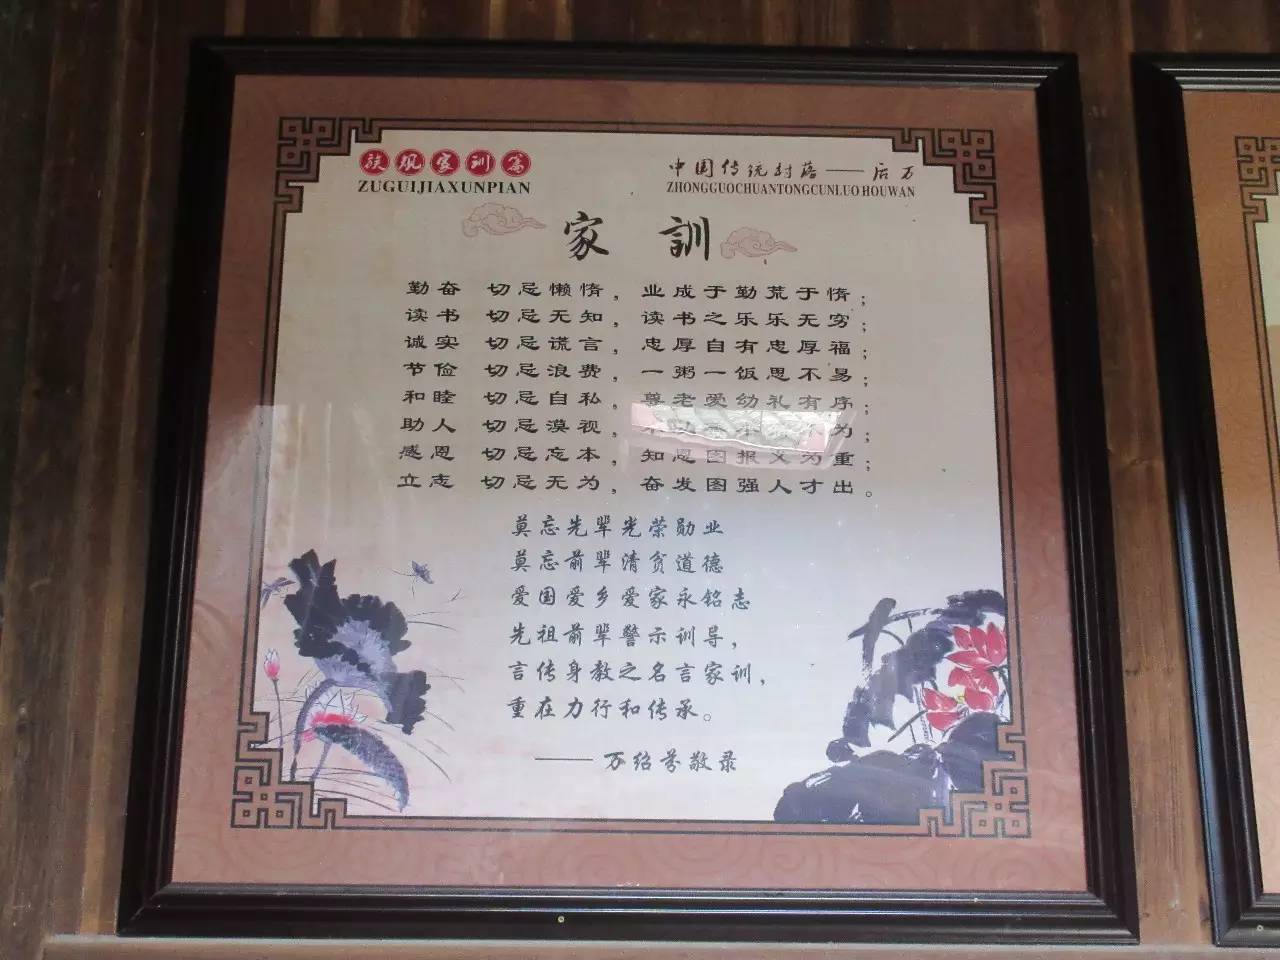 族风家训篇
ZUGUIJIAXUNPIAN
中国传统村落——后万
ZHONGGUOCHUANTONGCUNLUO HOUWAN
家 訓
勤奋 切忌懒惰，业成于勤荒于惰；
读书 切忌无知，读书之乐乐无穷；
诚实 切忌谎言，忠厚自有忠厚福；
节俭 切忌浪费，一粥一饭思不易；
和睦 切忌自私，尊老爱幼礼有序；
助人 切忌漠视，为；
感恩 切忌忘本，知恩图报义为重；
立志 切忌无为，奋发图强人才出。
莫忘先辈光荣勋业
莫忘前辈清贫道德
爱国爱乡爱家永铭志
先祖前辈警示训导，
言传身教之名言家训，
重在力行和传承。
——万绍芬敬录